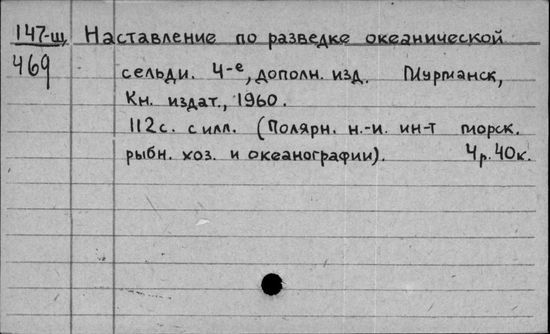 147-щ Наставление по разведке океанической
469 сельди. 4-е, дополн. изд. Мурманск,
Кн. издат., 1960.
112с. с илл. (Полярн. н.-и. ин-т морск.
рыбн. хоз. и океанографии). 4р. 40к.